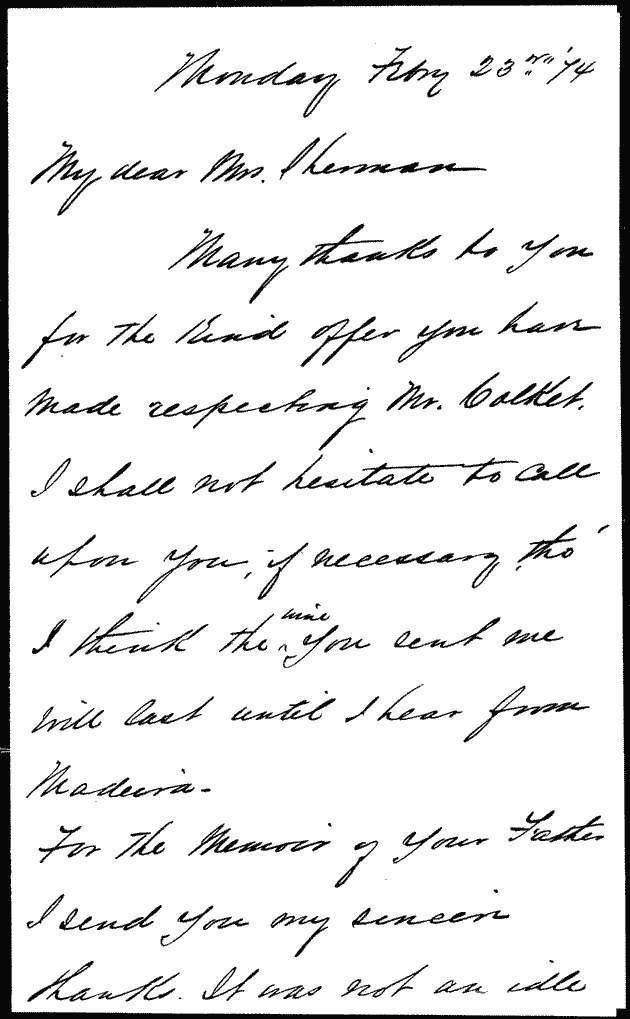 Monday Febry 23rd '74
My dear Mrs. Sherman
Many thanks to you
for the kind offer you have
made respecting Mr. Colket.
I shall not hesitate to call
upon you, if necessary, tho'
I think the ^wine you sent me
will last until I hear from
Madeira -
For the Memoir of your Father
I send you my sincere
thanks. It was not an idle